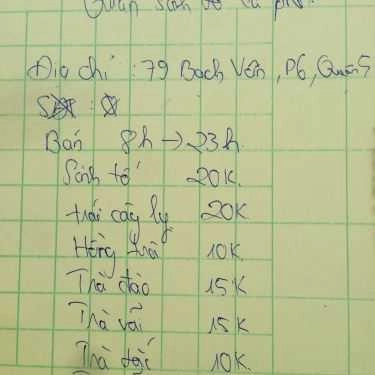 Quán sinh tố cà phê.
Địa chỉ : 79 Bạch Vân , P6 , Quận 5
: 
Bán 8h → 23h.
Sinh tố 20K.
trái cây ly 20K
Hồng trà 10K
Trà đào 15K
Trà vải 15K
Trà tắc 10K